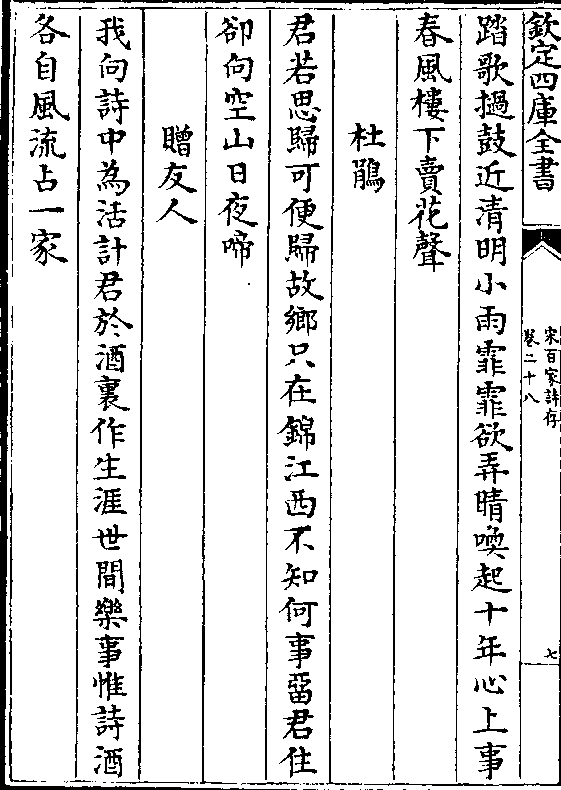 欽定四庫全書
宋百家詩存
卷二十八
七
踏歌撾鼓近清明小雨霏霏欲弄晴喚起十年心上事
春風樓下賣花聲
杜鵑
君若思歸可便歸故鄉只在錦江西不知何事畱君住
卻向空山日夜啼
贈友人
我向詩中為活計君於酒裏作生涯世間樂事惟詩酒
各自風流占一家